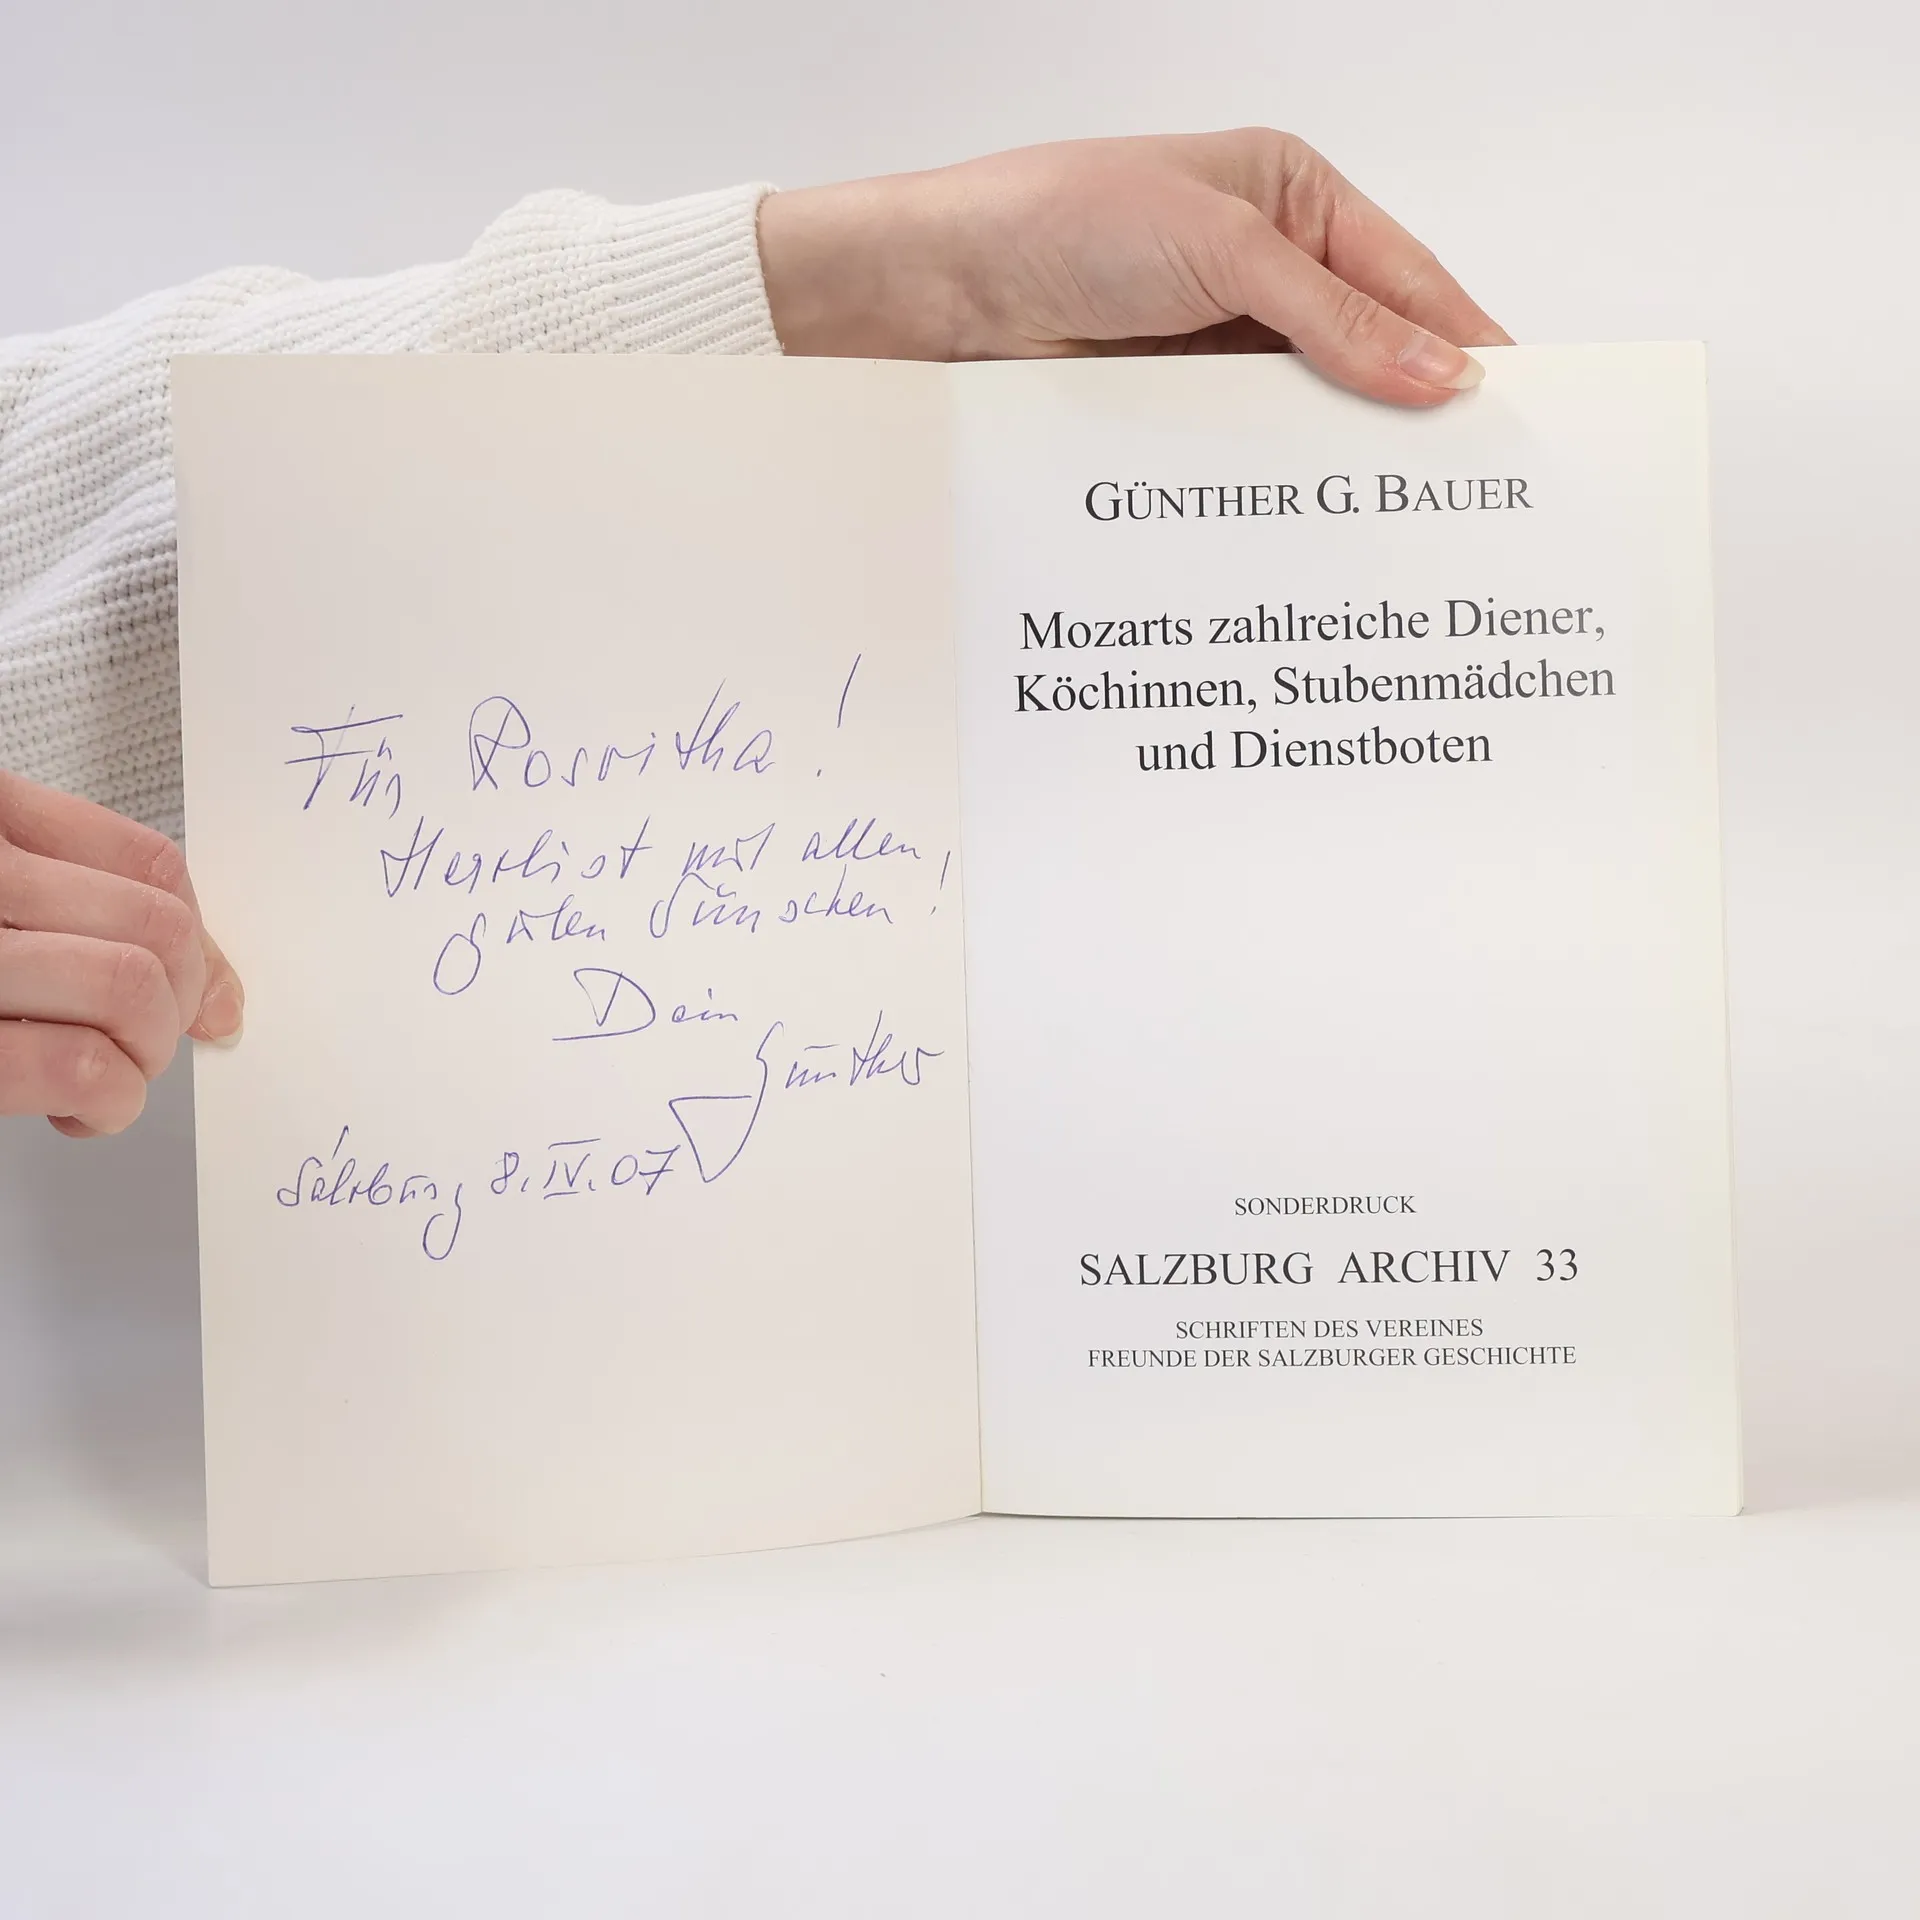 Für Roswitha!
Herzlichst mit allen
guten Wünschen!
Dein
Günther
Salzburg, 8. IV. 07
GÜNTHER G. BAUER
Mozarts zahlreiche Diener,
Köchinnen, Stubenmädchen
und Dienstboten
SONDERDRUCK
SALZBURG ARCHIV 33
SCHRIFTEN DES VEREINES
FREUNDE DER SALZBURGER GESCHICHTE